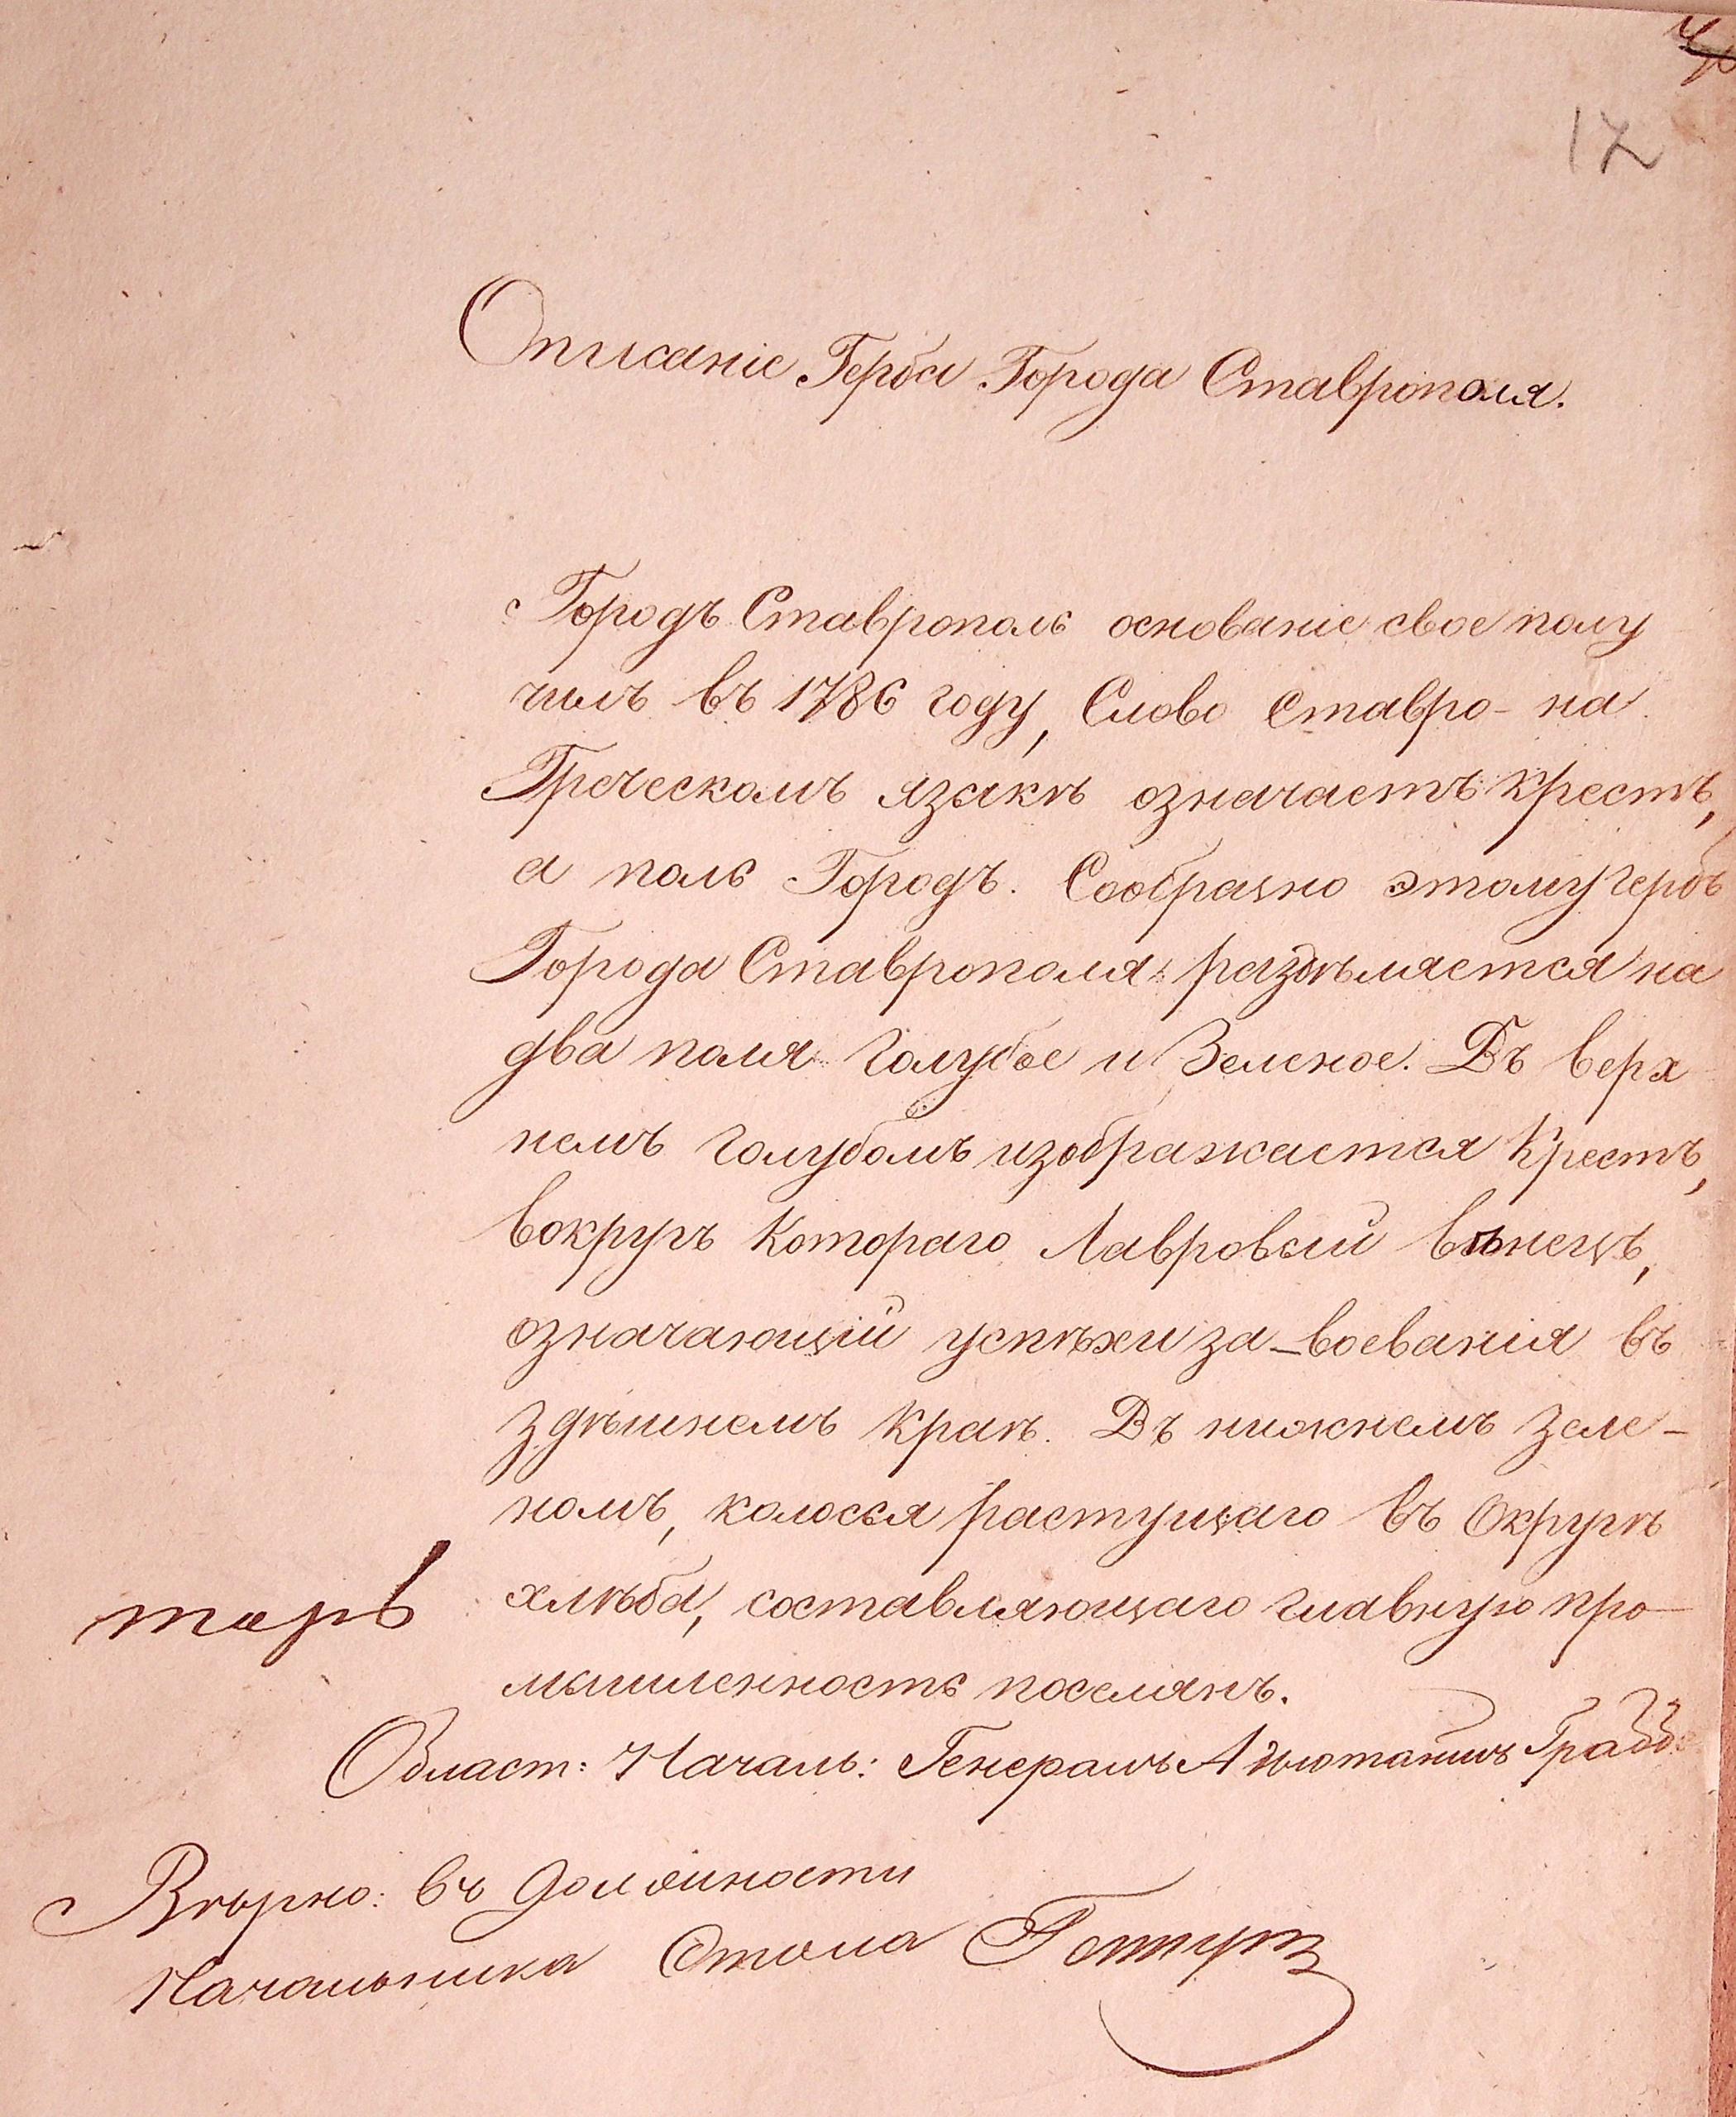 12
Описаніе Герба Города Ставрополя.
Городъ Ставрополь основаніе свое полу
чилъ въ 1786 году, Слово Ставро- на
Греческомъ языкѣ означаетъ крестъ,
а поль Городъ. Сообразно этому гербъ
Города Ставрополя раздѣляется на
два поля голубое и Зеленое. Въ верх
немъ голубомъ изображается Крестъ,
вокругъ Котораго Лавровый вѣнецъ,
означающій успѣхи за-воеванія въ
здѣшнемъ краѣ. Въ нижнемъ зеле-
номъ, колосья растущаго въ Округѣ
хлѣба, составляющаго главную про-
мышленность поселянъ.
Област: Началь: Генералъ Адъютантъ Граббе
Вѣрно: въ должности
Начальника Стола